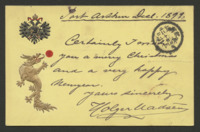 Port Arthur Dec. 1899.
Certainly I wish
you a merry Christmas
and a very happy
Newyear.
yours sincerely
Holger Madsen